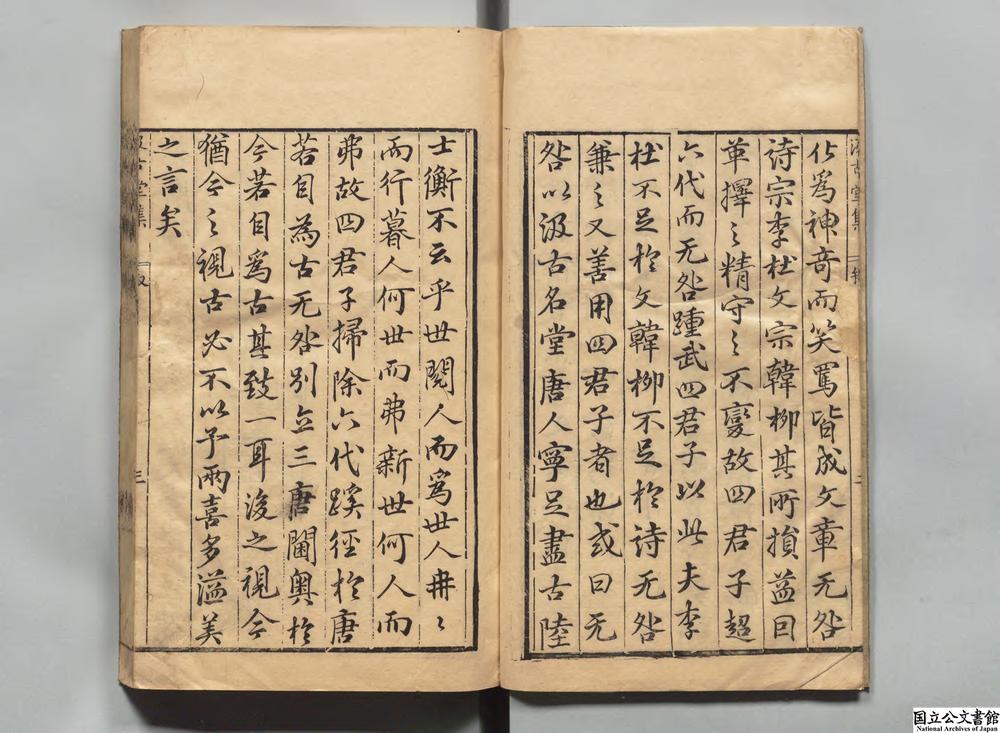 化爲神奇而笑罵皆成文章无咎
诗宗李杜文宗韓柳其所損益因
革擇之精守之不變故四君子超
六代而无咎踵武四君子以此夫李
杜不足於文韓柳不足於诗无咎
兼之又善用四君子者也或曰无
咎以汲古名堂唐人寧足盡古陸
士衡不云乎世閱人而爲世人冉冉
而行暮人何世而弗新世何人而
弗故四君子掃除六代蹊徑於唐
若目為古无咎別立三唐閫奥於
今若目爲古其致一耳後之視今
猶今之視古必不以予兩喜多溢美
之言矣
三
国立公文書館
National Archives of Japan